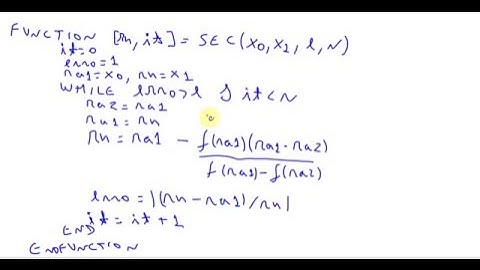 FUNCTION [rn, it] = SEC(x0, x1, e, N)
it=0
erro=1
ra1=x0, rn=x1
WHILE erro>e & it<N
ra2=ra1
ra1=rn
rn = ra1 - f(ra1)(ra1-ra2)
f(ra1)-f(ra2)
erro=|(rn-ra1)/rn|
it=it+1
END
ENDFUNCTION